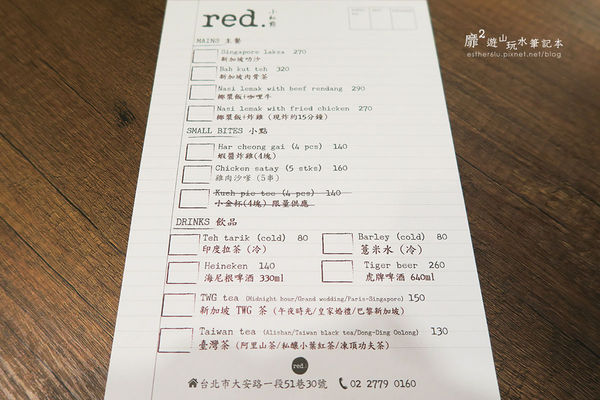 red.
小紅點
靡²遊山玩水筆記本
esther6lu.pixnet.net/blog
MAINS 主餐
Singapore laksa 270
新加坡叻沙
Bah kut teh 320
新加坡肉骨茶
Nasi lemak with beef rendang 290
椰漿飯+咖哩牛
Nasi lemak with fried chicken 270
椰漿飯+炸雞 (現炸約15分鐘)
SMALL BITES 小點
Har cheong gai (4 pcs) 140
蝦醬炸雞(4塊)
Chicken satay (5 stks) 160
雞肉沙嗲 (5串)
Kueh pie tee (4 pcs) 140
小金杯(4塊) 限量供應
DRINKS 飲品
Teh tarik (cold) 80
印度拉茶 (冷)
Barley (cold) 80
薏米水 (冷)
Heineken 140
海尼根啤酒 330ml
Tiger beer 260
虎牌啤酒 640ml
TWG tea (Midnight hour/Grand wedding/Paris-Singapore) 150
新加坡 TWG 茶 (午夜時光/皇家婚禮/巴黎新加坡)
Taiwan tea (Alishan/Taiwan black tea/Dong-Ding Oolong) 130
臺灣茶 (阿里山茶/私釀小葉紅茶/凍頂功夫茶)
red.
台北市大安路一段51巷30號 02 2779 0160